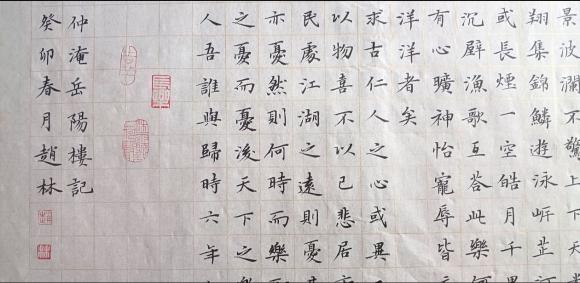 景波瀾不驚上下天
翔集錦鱗遊泳岸芷汀
或長煙一空皓月千里
沉璧漁歌互荅此樂何
有心曠神怡寵辱皆
洋洋者矣
求古仁人之心或異
以物喜不以己悲居
民處江湖之遠則憂其
亦憂然則何時而樂
之憂而憂後天下之
人吾誰與歸時六年
仲淹岳陽樓記
癸卯春月趙林